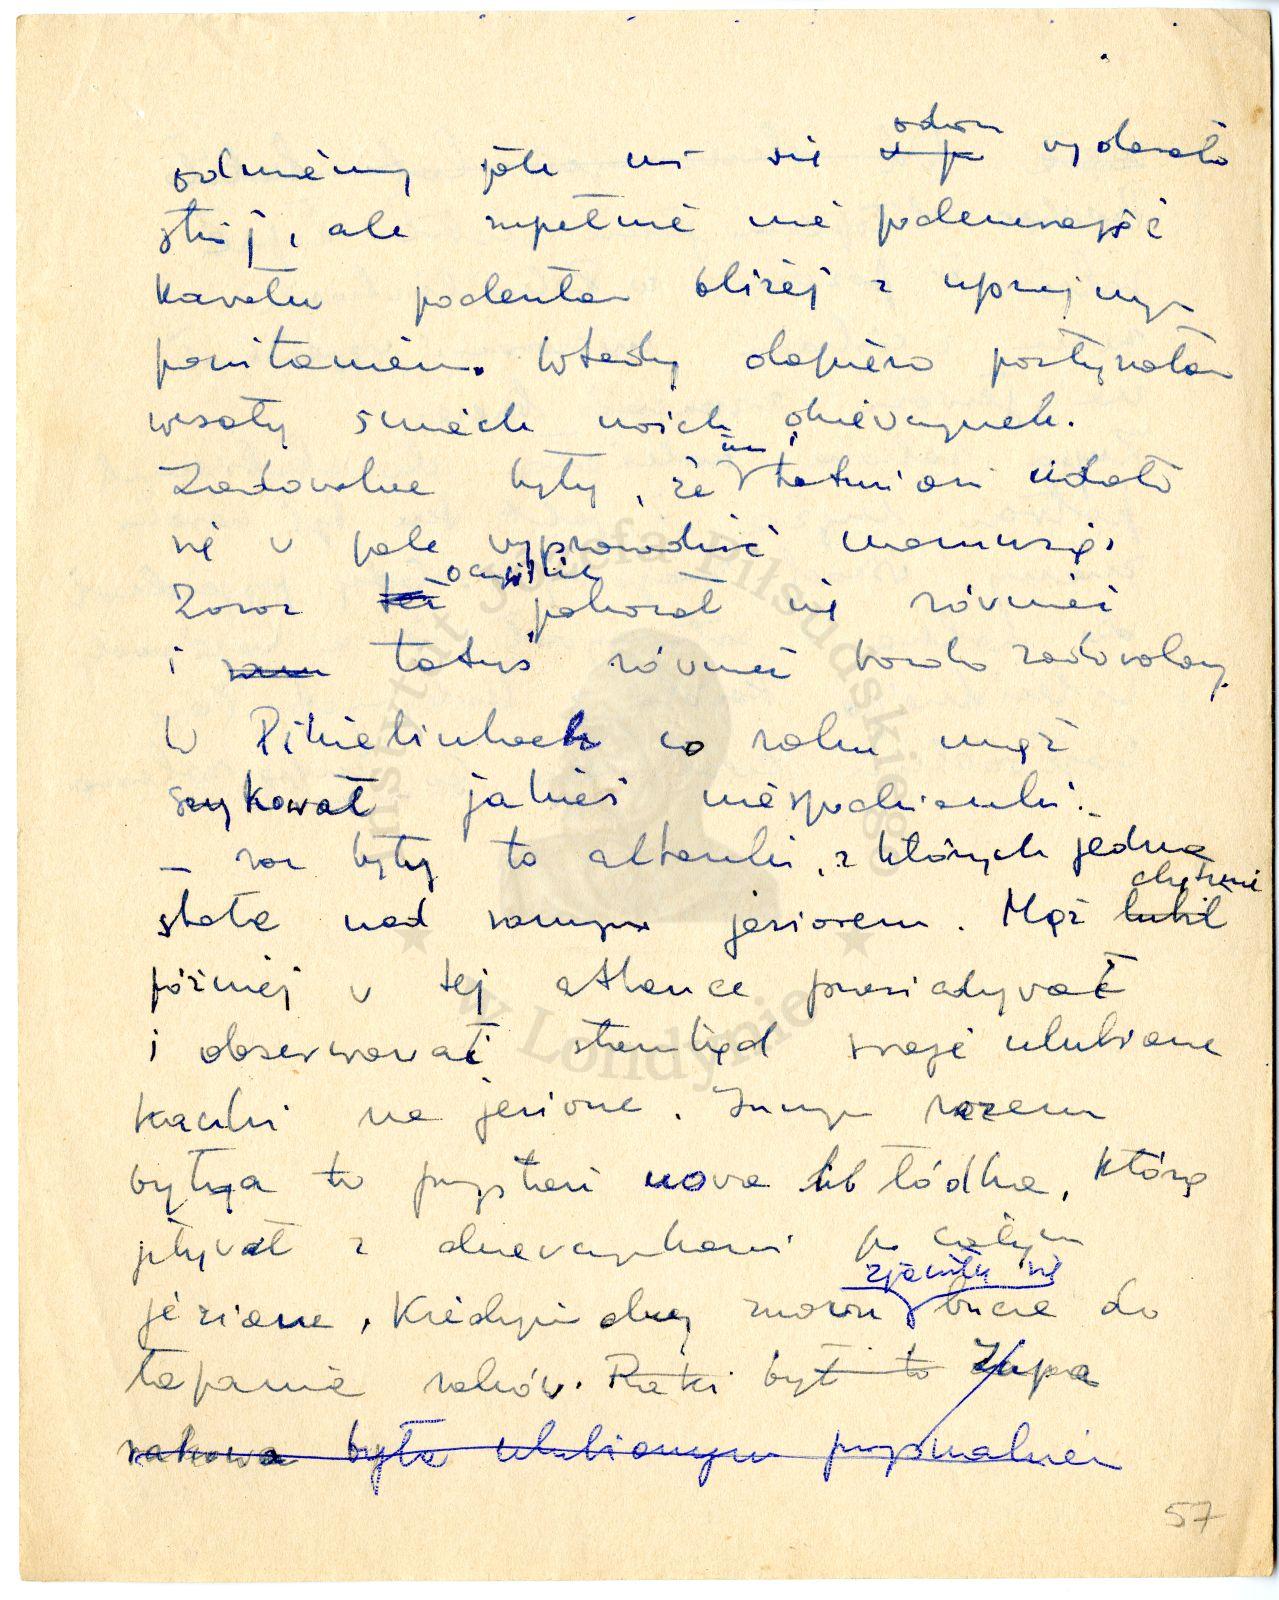 odmienny jak mi się odrazu wydawało
strój, ale zupełnie nie podejrzewając
kawału podeszłam bliżej z uprzejmym
powitaniem. Wtedy dopiero posłyszałam
wesoły śmiech moich dziewczynek.
Zadowolne były, że im i tatusiowi udało
się w pole wyprowadzić mamusię.
Zaraz oczywiście pokazał się również
i tatuś również bardzo zadowolony.
W Pikieliszkach co roku mąż
szykował jakieś niespodzianki.
– raz były to altanki, z których jedna
stała nad samym jeziorem. Mąż chętnie
później w tej altance przesiadywać
i obserwować stamtąd swoje ulubione
kaczki na jeziorze. Innym razem
była to przystań nowa łódka, którą
pływał z dziewczynkami po całym
jeziorze. Kiedyindziej znowu zjawiły się bucze do
łapania raków. Raki był to Zupa
rakowa była ulubionym przysmakiem
57
Instytut Józefa Piłsudskiego
w Londynie